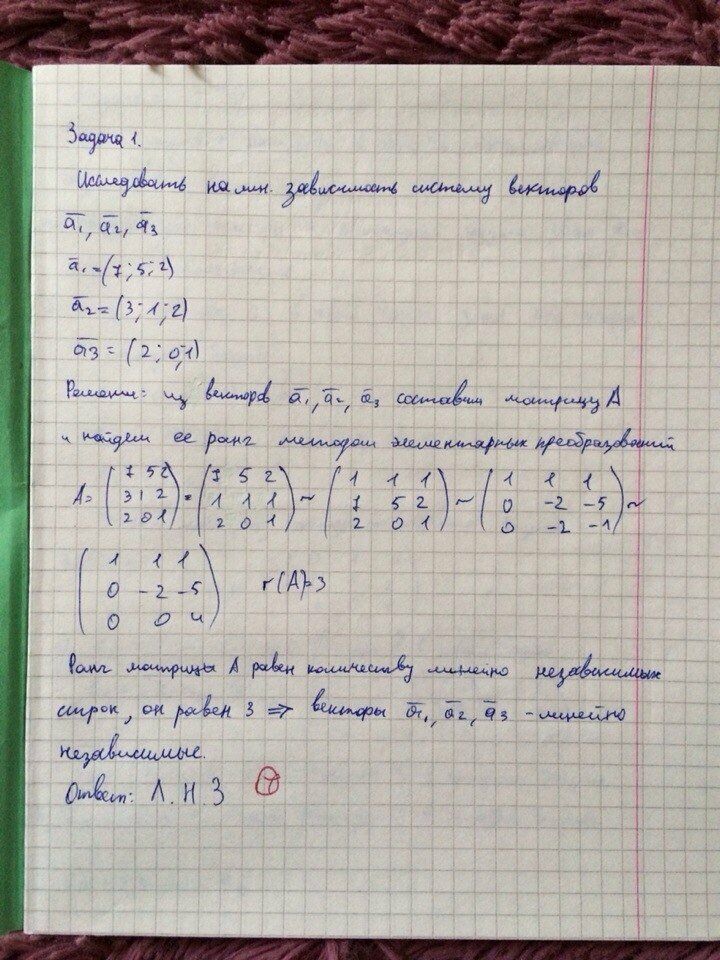 Задача 1.
Исследовать на лин. зависимость систему векторов
a̅₁, a̅₂, a̅₃
a̅₁ = (7; 5; 2)
a̅₂ = (3; 1; 2)
a̅₃ = (2; 0; 1)
Решение: из векторов a̅₁, a̅₂, a̅₃ составим матрицу A
и найдем ее ранг методом элементарных преобразований
A = (7 5 2 / 3 1 2 / 2 0 1) = (7 5 2 / 1 1 1 / 2 0 1) ~ (1 1 1 / 7 5 2 / 2 0 1) ~ (1 1 1 / 0 -2 -5 / 0 -2 -1) ~
(1 1 1 / 0 -2 -5 / 0 0 4) r(A)=3
Ранг матрицы A равен количеству линейно независимых
строк, он равен 3 ⇒ векторы a̅₁, a̅₂, a̅₃ - линейно
независимые.
Ответ: Л. Н. З